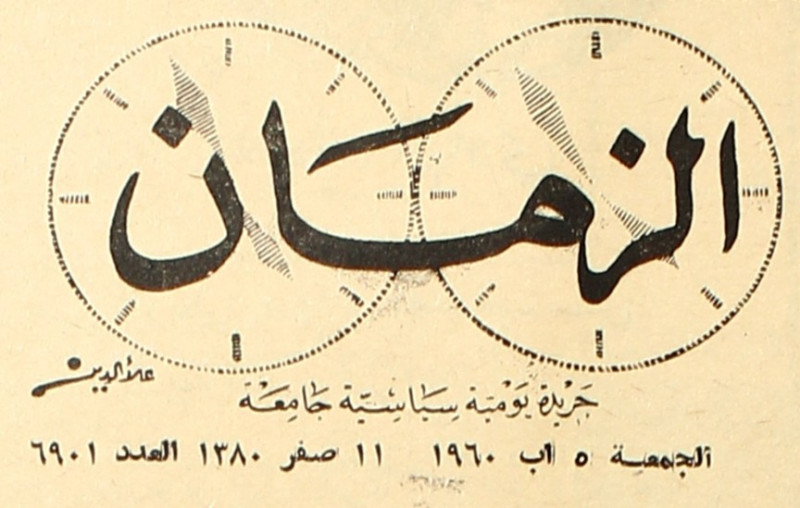 الزمان
علاء الدين
جريدة يومية سياسية جامعة
الجمعية ٥ اب ١٩٦٠ ١١ صفر ١٣٨٠ العدد ٦٩٠١